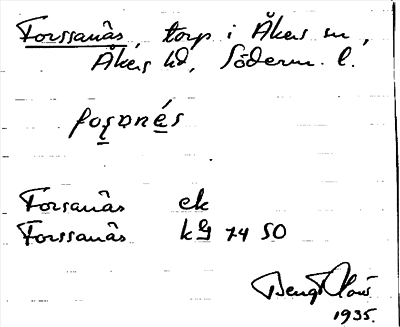 Forssanäs, torp i Åkers sn,
Åkers hd, Söderm. l.
foṣanés
Forsanäs ek
Forssanäs 74 SO
Bengt
1935.